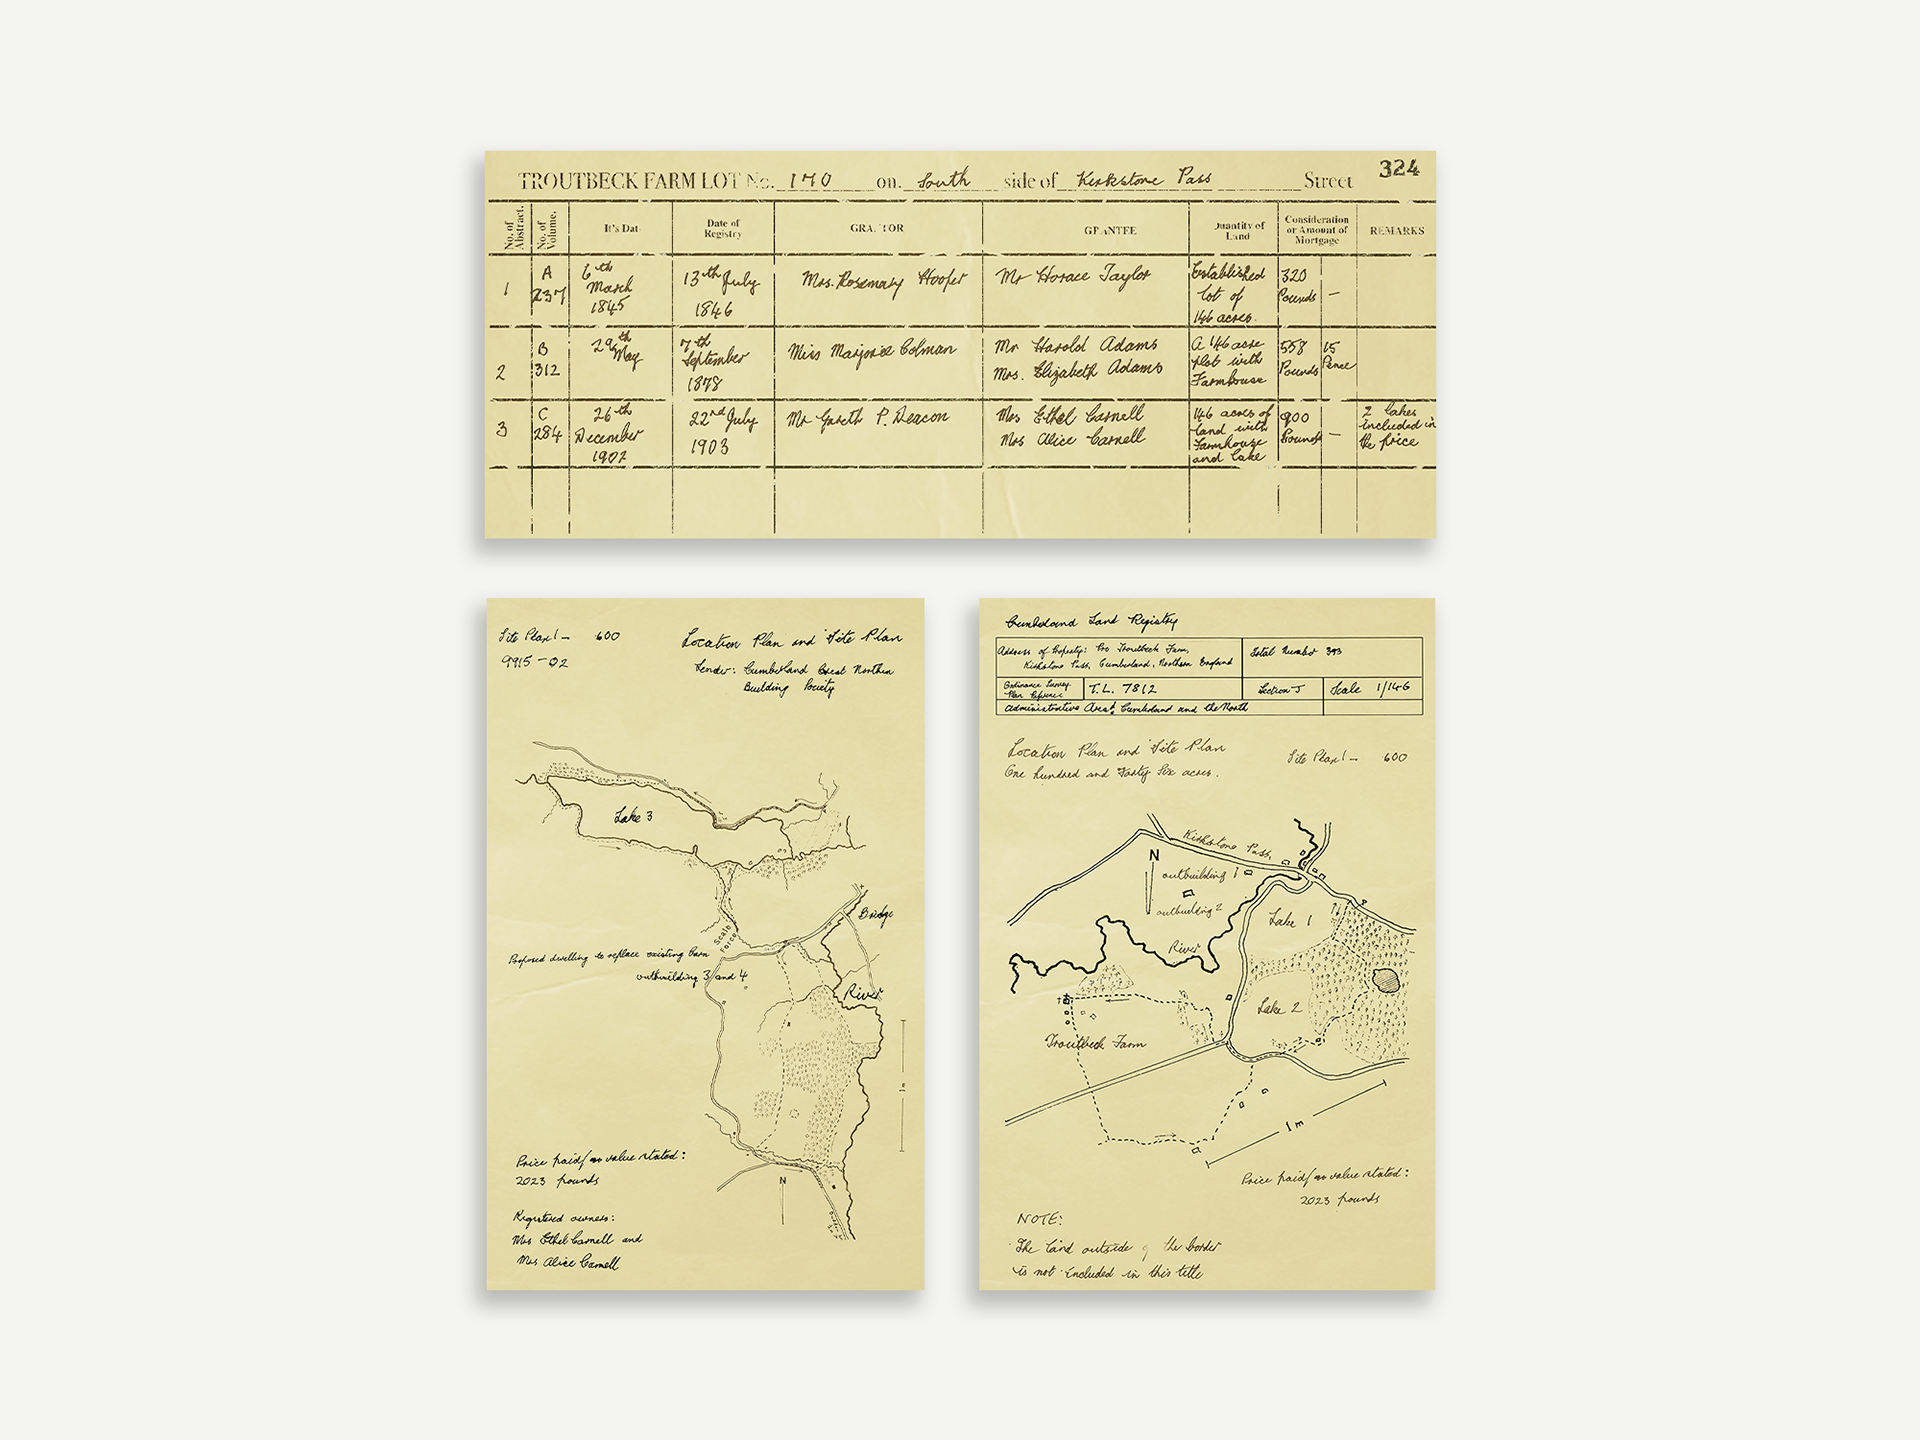 324
TROUTBECK FARM LOT No. 170 on. South side of Kirkstone Pass Street
No. of Abstract. No. of Volume. It's Dat Date of Registry GRA TOR GRANTEE Quantity of Land Consideration or Amount of Mortgage REMARKS
1 A 237 6th March 1845 13th July 1846 Mrs. Rosemary Hooper Mr Horace Taylor Established lot of 146 acres. 320 Pounds –
2 B 312 29th May 7th September 1878 Miss Marjorie Colman Mr Harold Adams Mrs. Elizabeth Adams A 146 acre plot with Farmhouse 558 Pounds 15 Pence
3 C 284 26th December 1902 22nd July 1903 Mr Gareth P. Deacon Mrs Ethel Carnell Mrs Alice Carnell 146 acres of land with Farmhouse and lake 900 Pounds – 2 lakes included in the price
Site Plan 1 – 600
9915-02
Location Plan and Site Plan
Lender: Cumberland Great Northern
Building Society
Lake 3
Bridge
Scale Force
Proposed dwelling to replace existing barn
outbuilding 3 and 4
River
Price paid/no value stated:
2023 pounds
N
Registered owners:
Mrs Ethel Carnell and
Mrs Alice Carnell
Cumberland Land Registry
Address of Property: Troutbeck Farm,
Kirkstone Pass, Cumberland, Northern England
Total Number 393
Ordinance Survey
Plan Reference
T.L. 7812
Section J
Scale 1/146
Administrative Area: Cumberland and the North
Location Plan and Site Plan
One hundred and Forty Six acres.
Site Plan 1 – 600
Kirkstone Pass
N
outbuilding 1
outbuilding 2
Lake 1
River
Lake 2
Troutbeck Farm
1m
Price paid/no value stated:
2023 pounds
NOTE:
The land outside of the border
is not included in this title